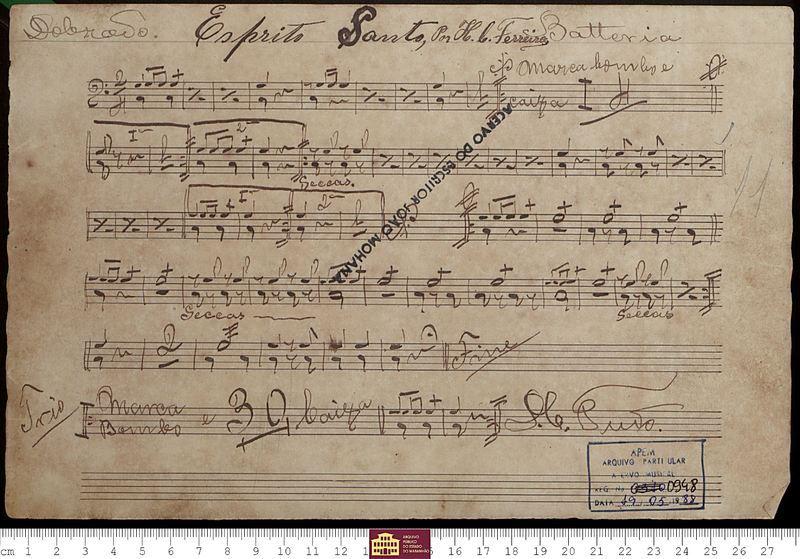 Dobrado. Esprito Santo, Por H. C. Ferreira Batteria
Marca bombo e
caixa
1ª 2ª
Seccas.
1ª 2ª
ACERVO DO ESCRITOR JOÃO MOHANA
Seccas Seccas
2 Fine
Trio Marca Bombo e 30 caixa D.C. Tudo.
APEM
ARQUIVO PARTICULAR
ACERVO MUSICAL
REG. No 0948
DATA 19 05 1988
cm 1 2 3 4 5 6 7 8 9 10 11 12 16 17 18 19 20 21 22 23 24 25 26 27
ARQUIVO
PÚBLICO
DO ESTADO
DO MARANHÃO